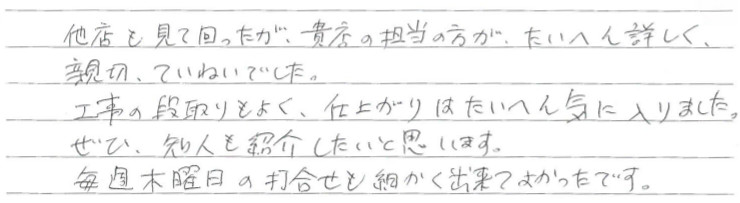 他店も見て回ったが、貴店の担当の方が、たいへん詳しく、
親切、ていねいでした。
工事の段取りもよく、仕上がりはたいへん気に入りました。
ぜひ、知人も紹介したいと思います。
毎週木曜日の打合せも細かく出来てよかったです。